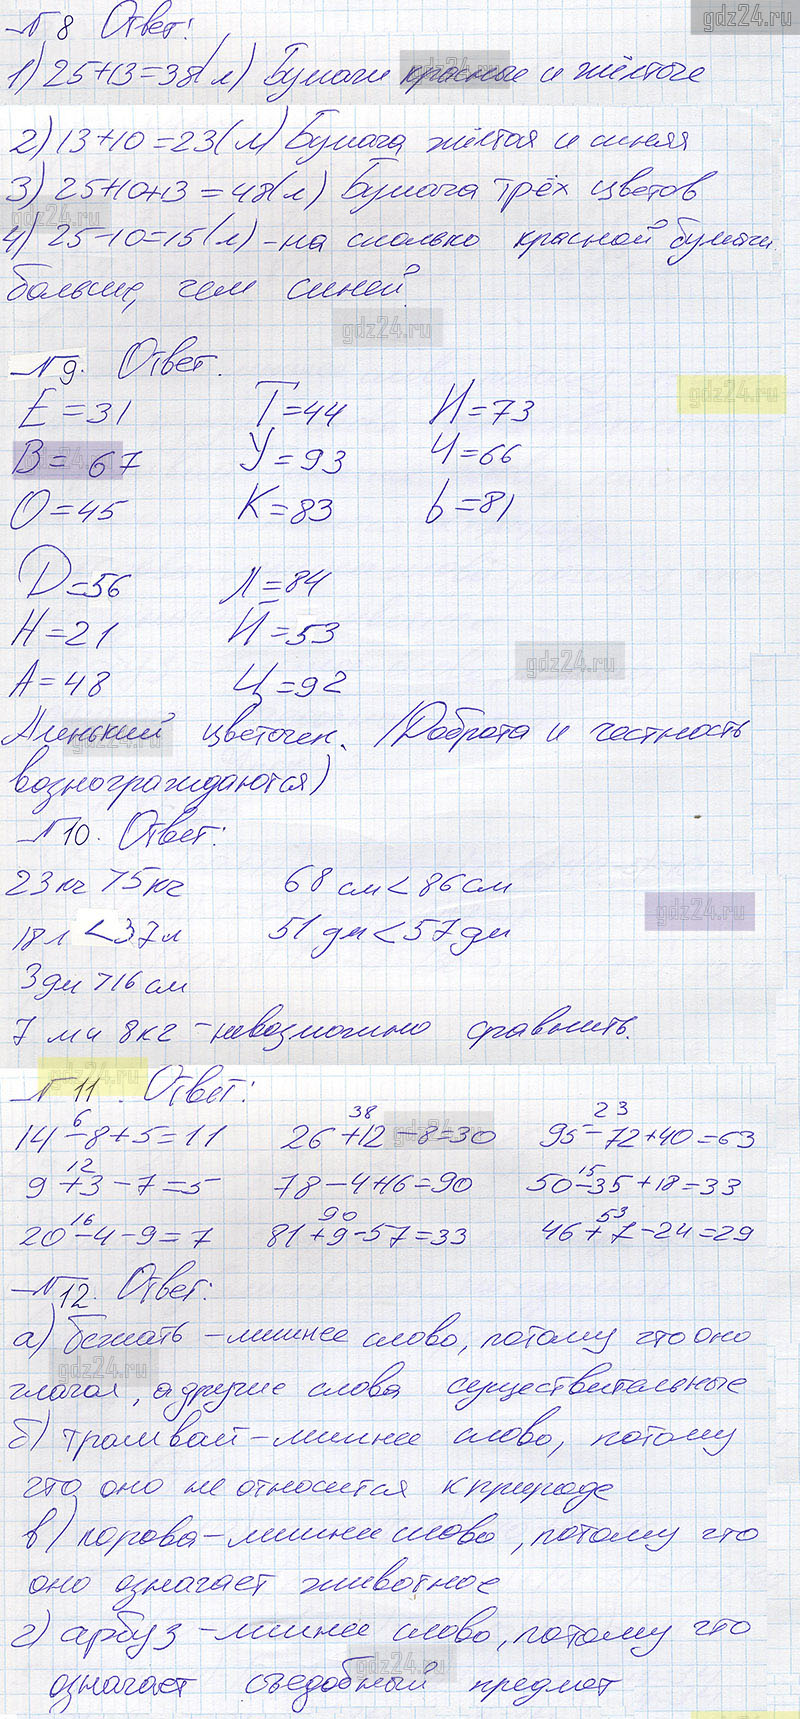 gdz24.ru
№8 Ответ:
1) 25+13=38(л) Бумаги красные и жёлтое
2) 13+10=23(л) Бумага жёлтая и синяя
3) 25+10+13=48(л) Бумага трёх цветов
4) 25-10=15(л) - на сколько красной бумаги
больше, чем синей.
gdz24.ru
№9. Ответ.
gdz24.ru
Е=31 Т=44 И=73
В=67 У=93 Ч=66
О=45 К=83 Ь=81
D=56 Л=84
Н=21 Й=53
А=48 Ц=92
gdz24.ru
Аленький цветочек. (Доброта и честность
вознограждаются)
№10. Ответ:
23кг>5кг 68см<86см
18л<37л 51дм<57дм
gdz24.ru
3дм>16см
7м и 8кг - невозможно сравнить.
№11. Ответ:
6 38 23
14-8+5=11 26+12-8=30 95-72+40=63
12 15
9+3-7=5 78-4+16=90 50-35+18=33
16 90 53
20-4-9=7 81+9-57=33 46+7-24=29
№12. Ответ:
а) бежать - лишнее слово, потому что оно
gdz24.ru
глагол, а другие слова существительные
б) трамвай - лишнее слово, потому
что оно не относится к природе
в) корова - лишнее слово, потому что
оно означает животное
г) арбуз - лишнее слово, потому что
gdz24.ru
означает съедобный предмет